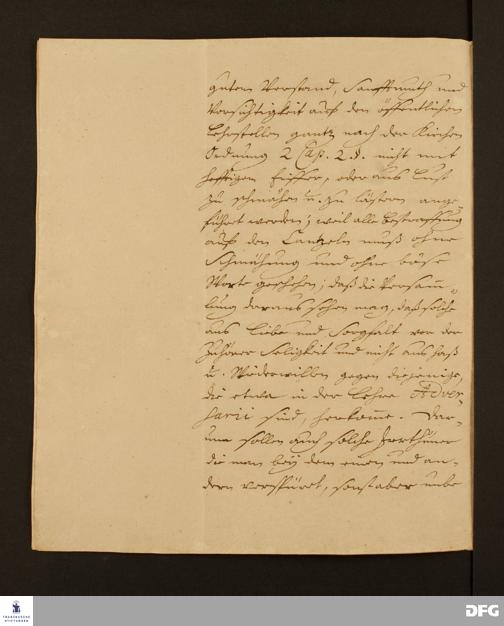 gutem Verstand, Sanfftmuth und
Vorsichtigkeit auf den öffentlichen
Lehrstellen gantz nach der Kirchen
Ordnung 2 Cap. 2 §. nicht mit
hefftigem Eiffer, oder aus Lust
zu schmähen u. zu lästern ange-
führet werden; weil alle Bestraffung
auf den Cantzeln muß ohne
Schmähung und ohne böse
Worte geschehen; daß die Versam̄-
lung daraus sehen mag, daß solche
aus Liebe und Sorgfalt vor der
Zuhörer Seligkeit und nicht aus Haß
u. Wiederwillen gegen diejenige,
die etwa in der Lehre Adver-
sarii sind, herkom̄e. Dar-
um sollen auch solche Irrthümer
die man bey dem einen und an-
dern verspüret, sonst aber unbe
FRANCKESCHE
STIFTUNGEN
DFG